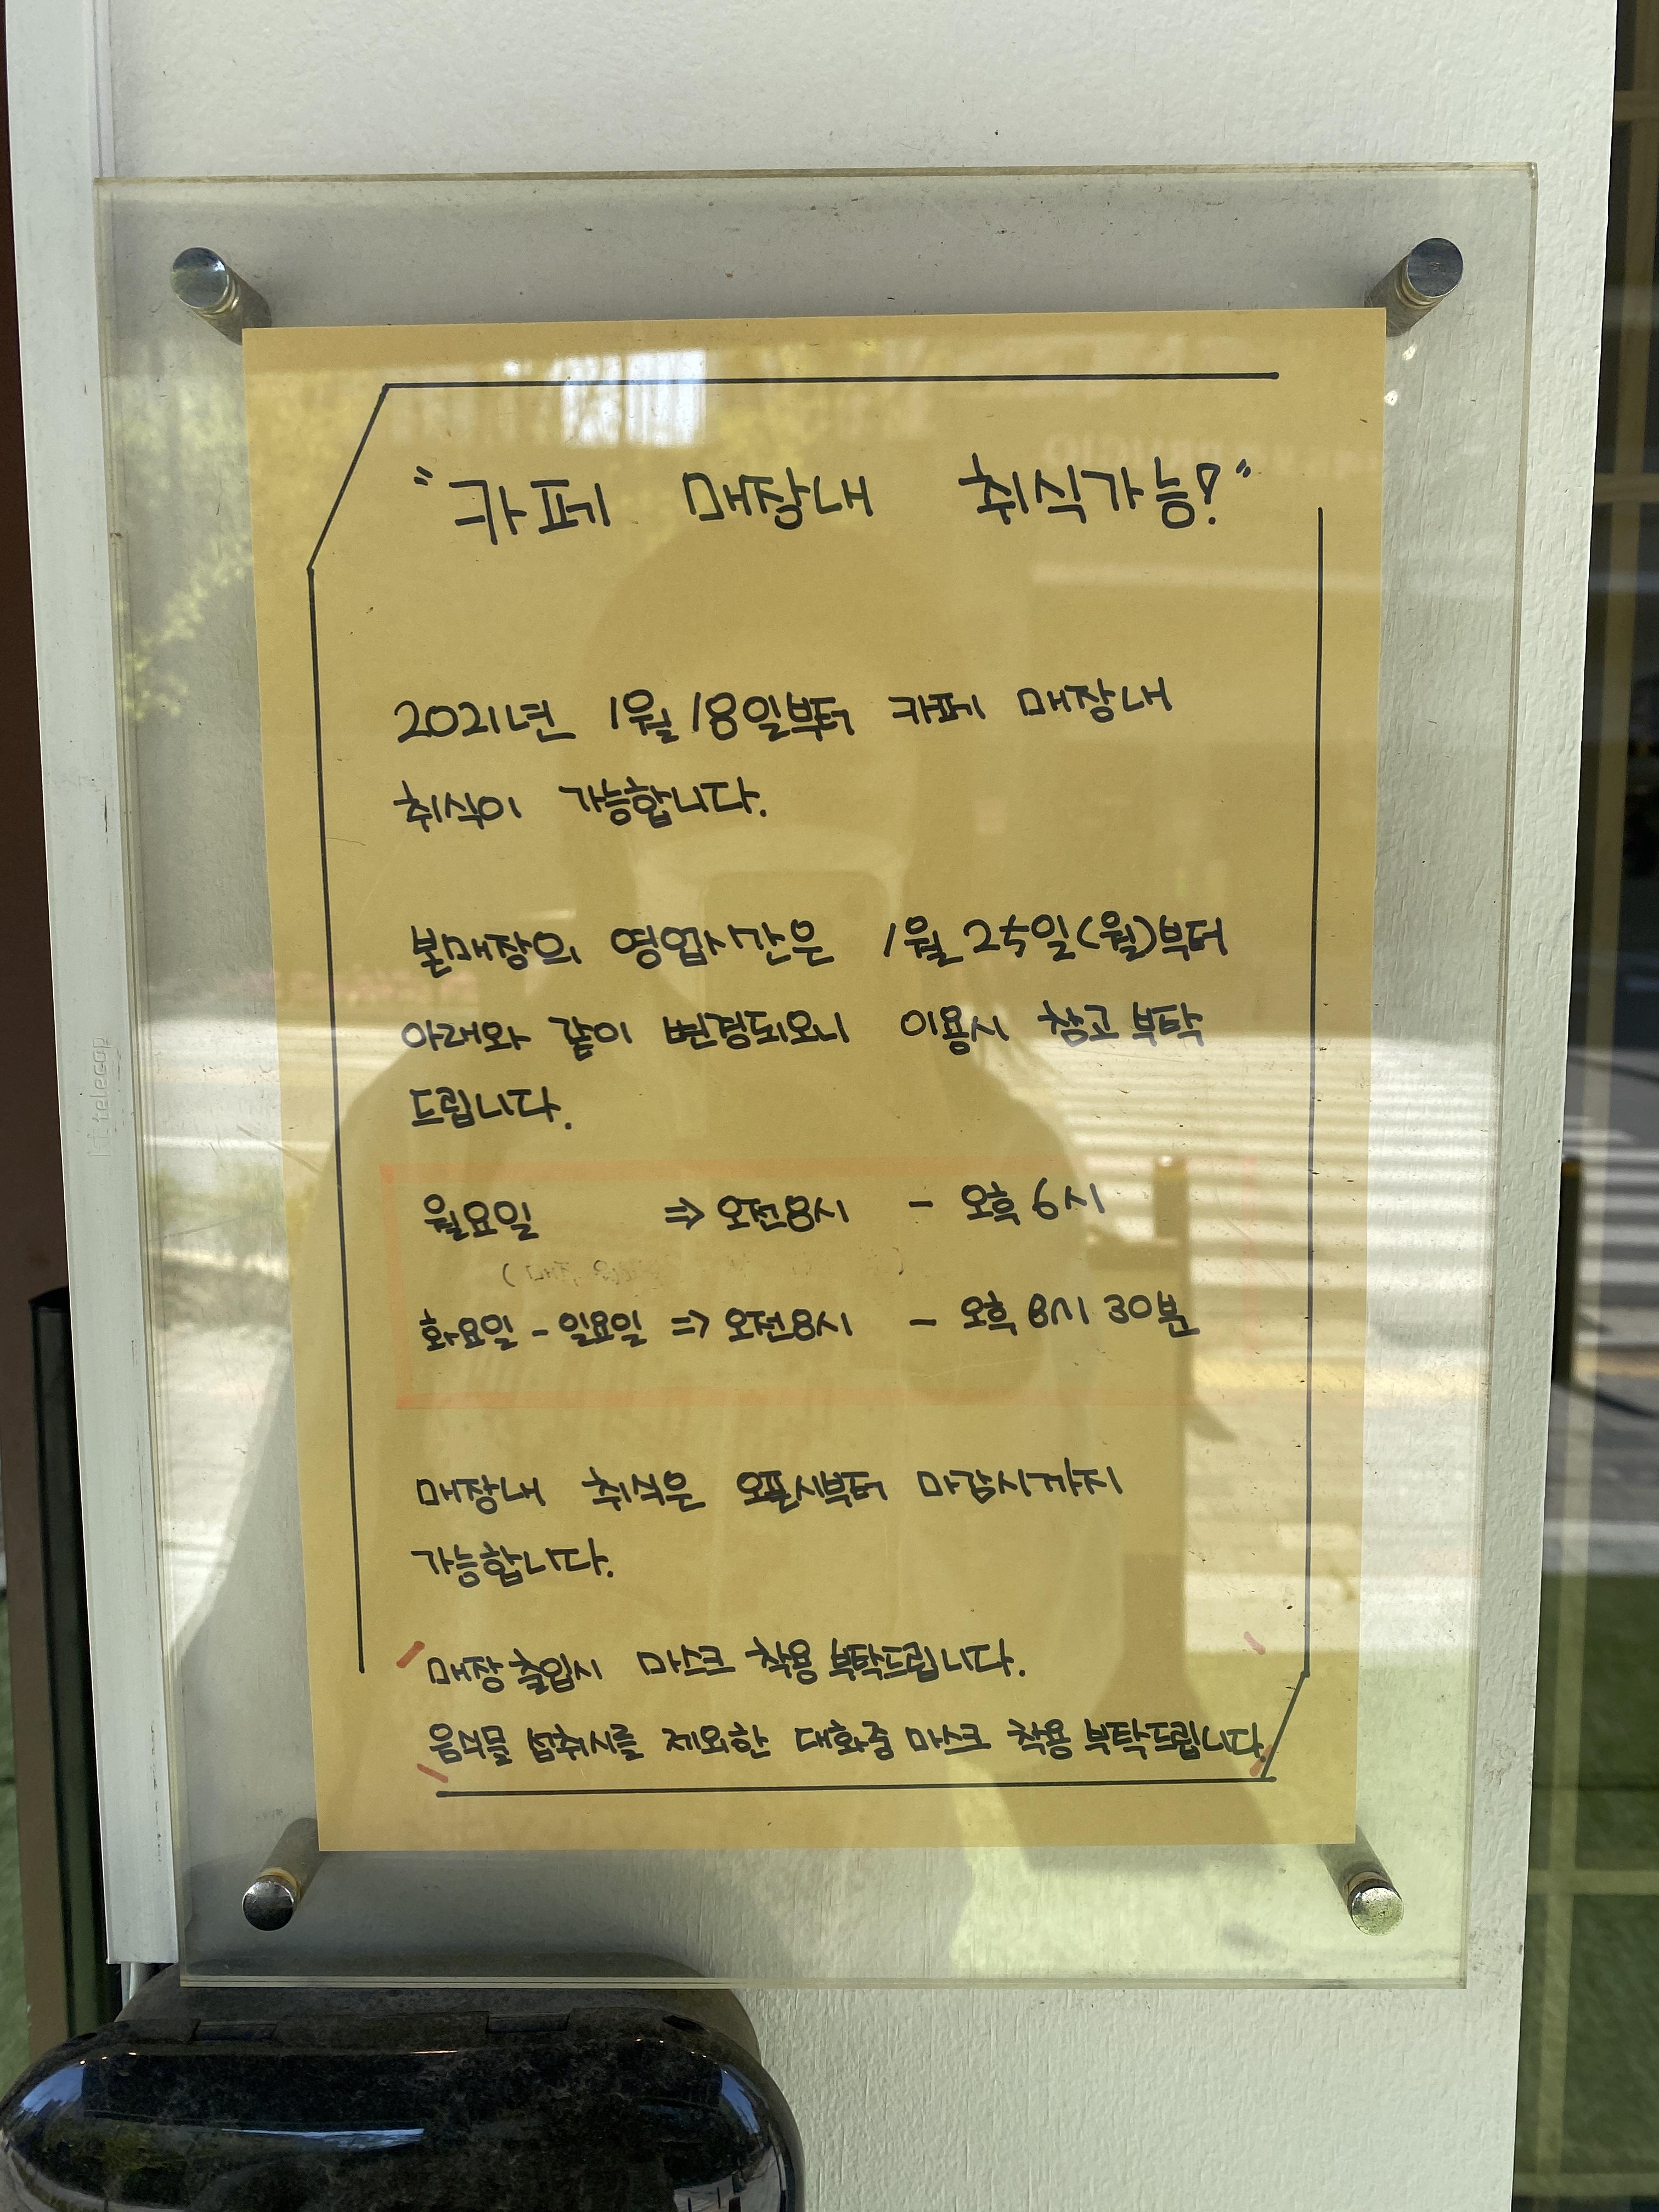 "카페 매장내 취식가능!"
2021년 1월 18일부터 카페 매장내
취식이 가능합니다.
본매장의 영업시간은 1월 25일(월)부터
아래와 같이 변경되오니 이용시 참고 부탁
드립니다.
월요일 => 오전8시 - 오후 6시
화요일 - 일요일 => 오전8시 - 오후 8시 30분
매장내 취식은 오픈시부터 마감시까지
가능합니다.
매장 출입시 마스크 착용 부탁드립니다.
음식물 섭취시를 제외한 대화중 마스크 착용 부탁드립니다.
telecop